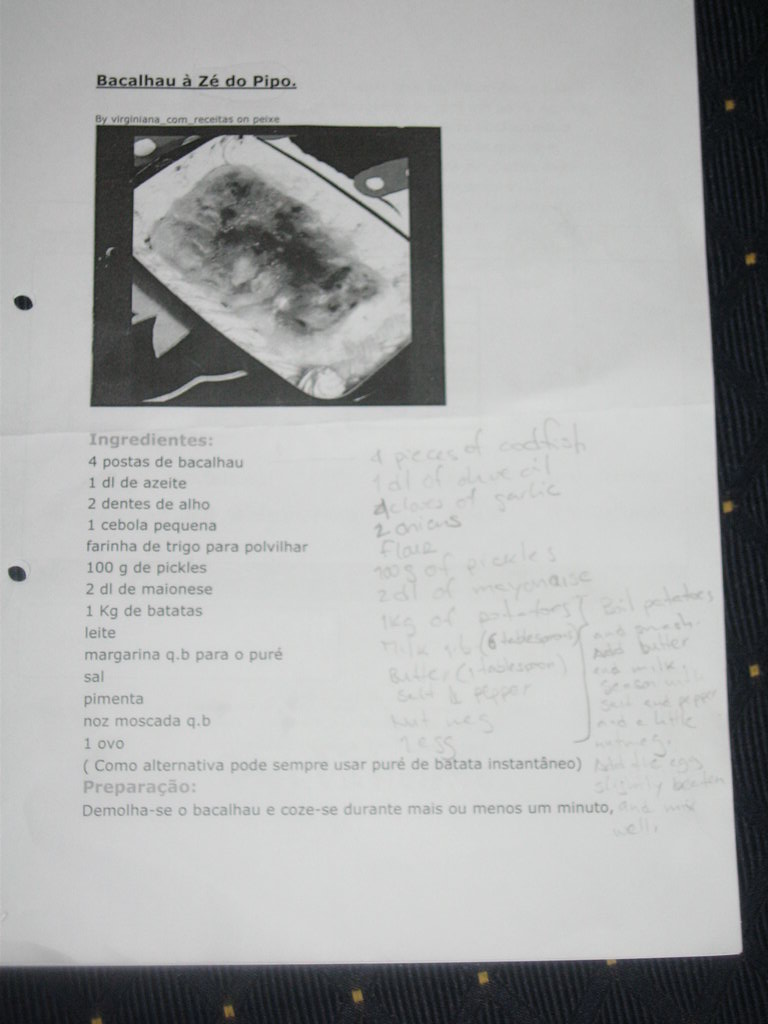 Bacalhau à Zé do Pipo.
By virginiana_com_receitas on peixe
Ingredientes:
4 postas de bacalhau
1 dl de azeite
2 dentes de alho
1 cebola pequena
farinha de trigo para polvilhar
100 g de pickles
2 dl de maionese
1 Kg de batatas
leite
margarina q.b para o puré
sal
pimenta
noz moscada q.b
1 ovo
( Como alternativa pode sempre usar puré de batata instantâneo)
Preparação:
Demolha-se o bacalhau e coze-se durante mais ou menos um minuto,
4 pieces of codfish
1 dl of olive oil
cloves of garlic
2 onions
100g of pickles
2 dl of mayonaise
1kg of
Milk q.b (6
Butter (1
Salt & pepper
Nut meg
1 egg
Boil potatoes
and
Add butter
and milk.
Season with
salt and pepper
and a little
nutmeg.
Add the egg
slightly beaten
and mix
well.